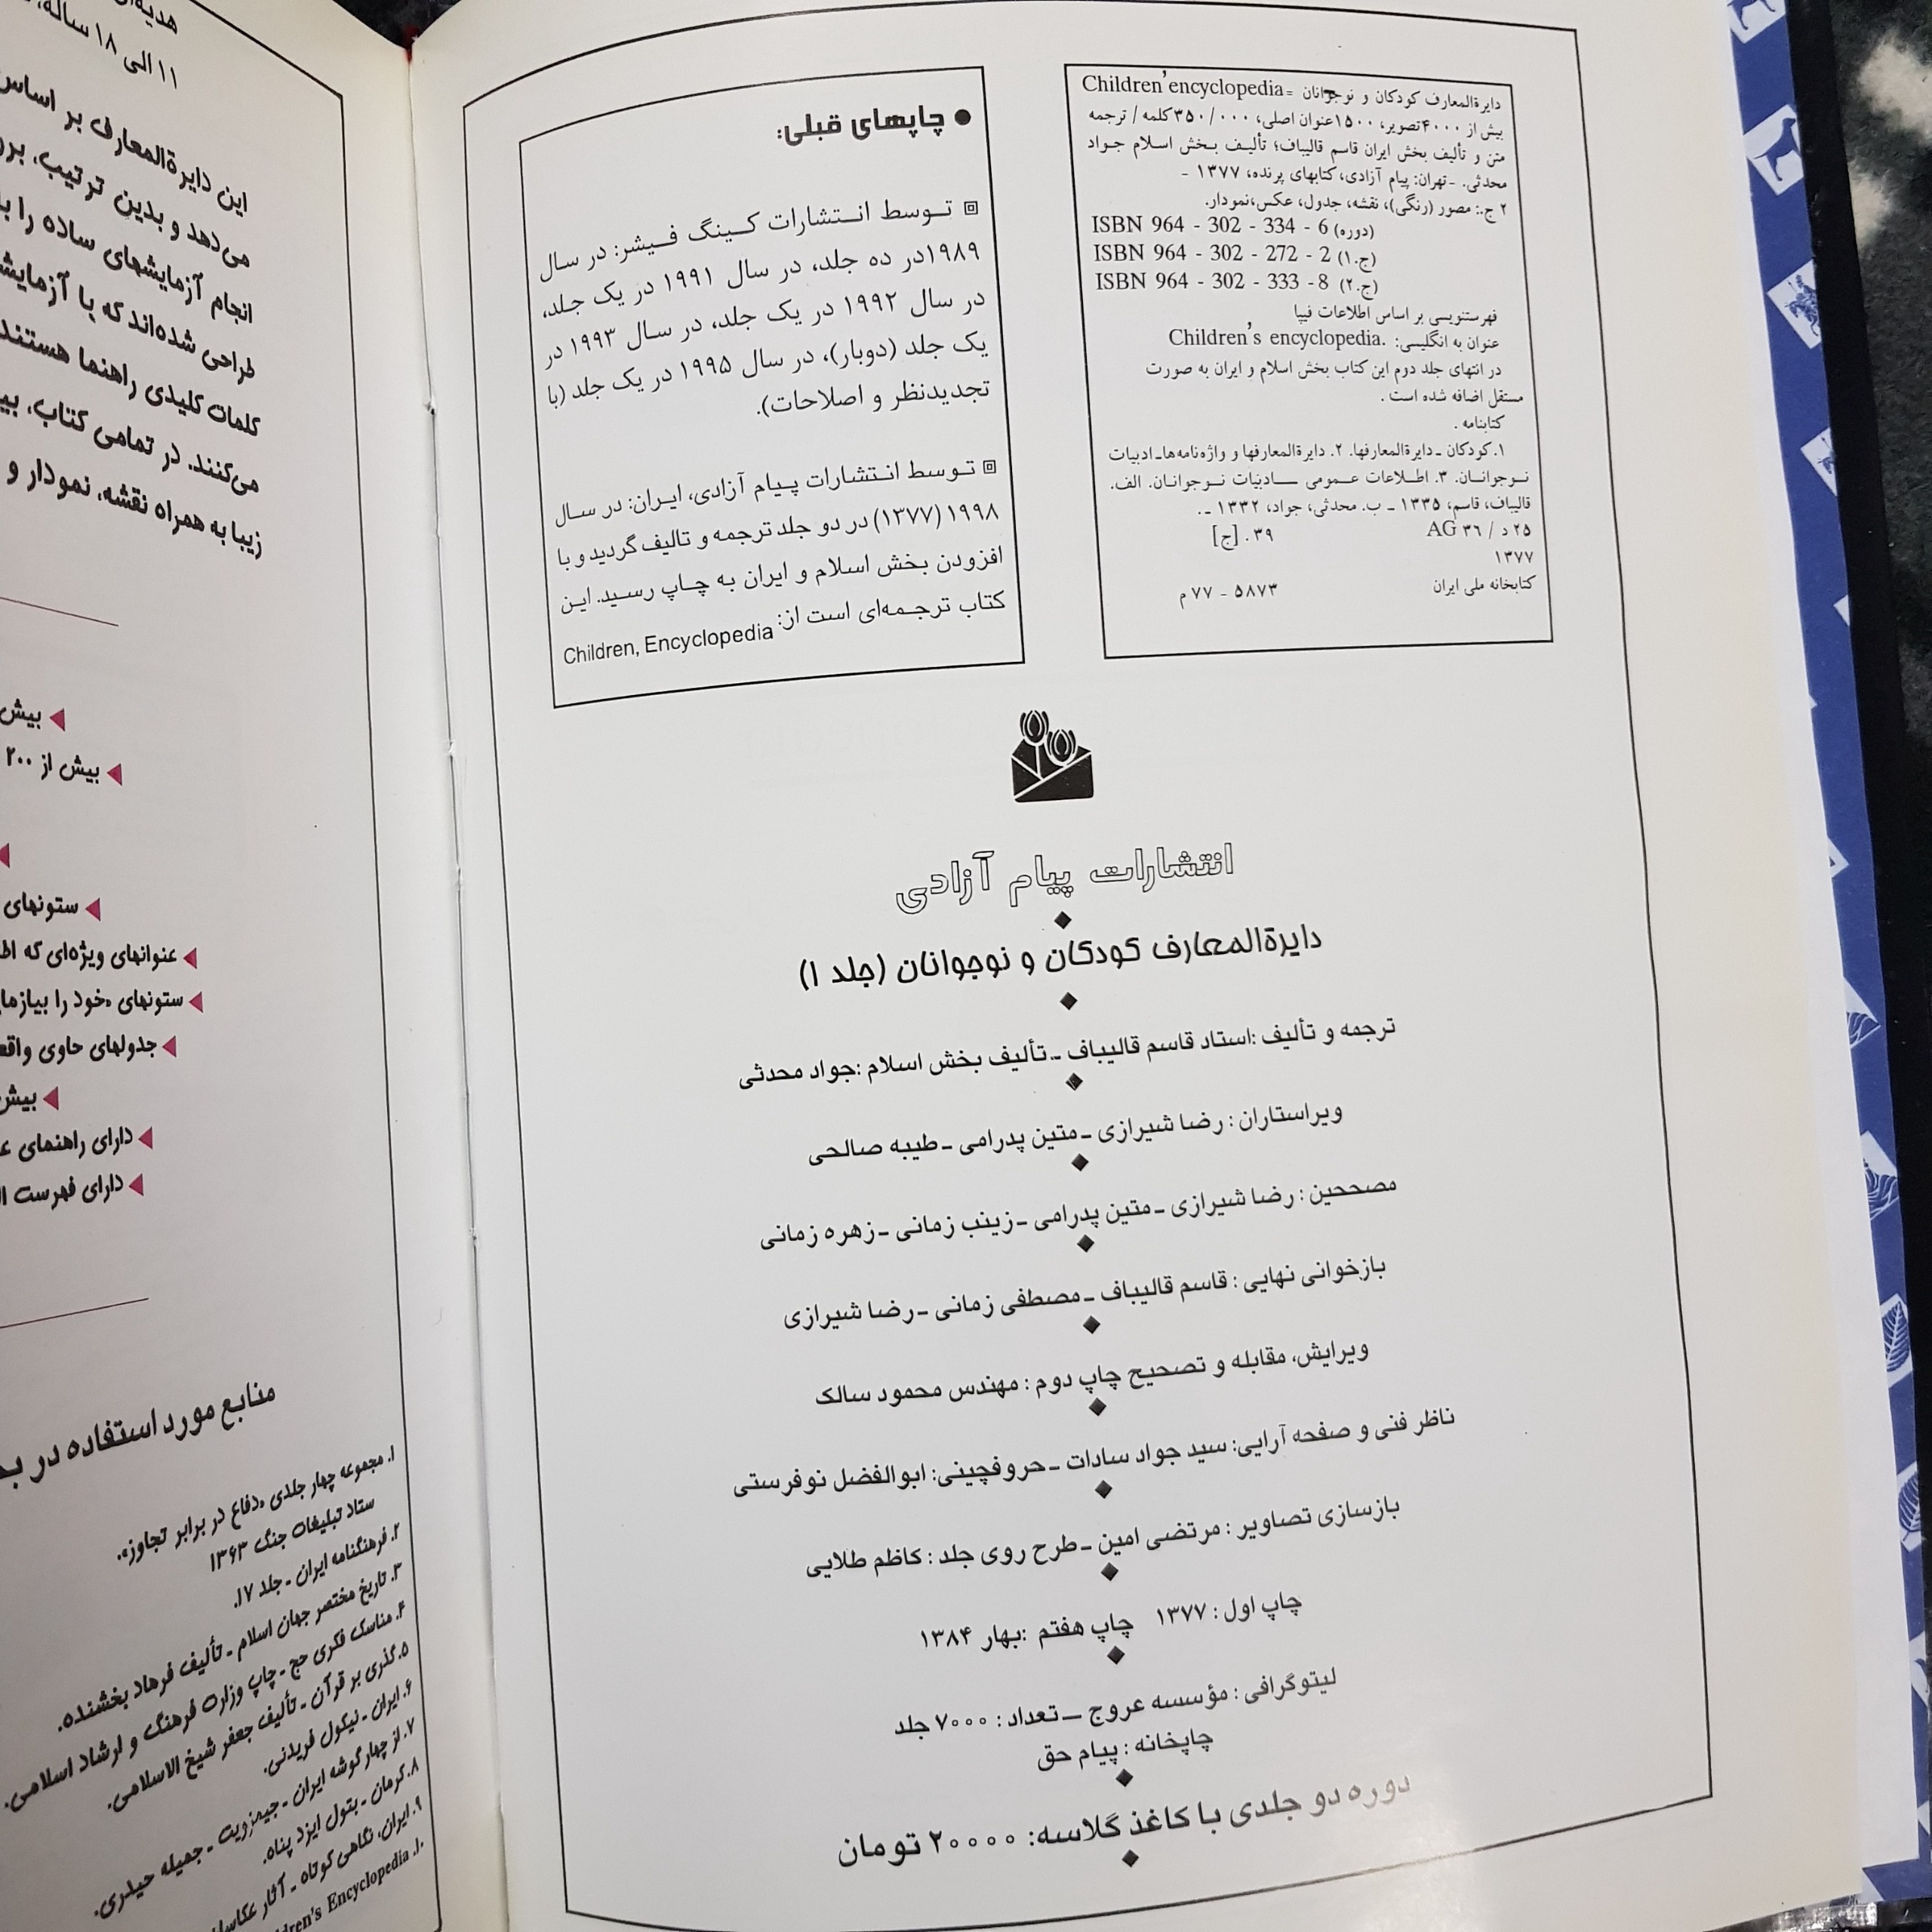 دایرةالمعارف کودکان و نوجوانان =Children'encyclopedia
بیش از ۴۰۰۰تصویر، ۱۵۰۰عنوان اصلی، ۳۵۰/۰۰۰کلمه / ترجمه
متن و تألیف بخش ایران قاسم قالیباف؛ تألیف بخش اسلام جواد
محدثی. -تهران: پیام آزادی،کتابهای پرنده، ۱۳۷۷ -
۲ ج.: مصور (رنگی)، نقشه، جدول، عکس،نمودار.
ISBN 964 - 302 - 334 - 6 (دوره)
ISBN 964 - 302 - 272 - 2 (ج.۱)
ISBN 964 - 302 - 333 - 8 (ج.۲)
فهرستنویسی بر اساس اطلاعات فیپا
عنوان به انگلیسی: .Children's encyclopedia
در انتهای جلد دوم این کتاب بخش اسلام و ایران به صورت
مستقل اضافه شده است .
کتابنامه .
۱.کودکان ـ دایرةالمعارفها. ۲. دایرةالمعارفها و واژه‌نامه‌ها-ادبیات
نوجوانان. ۳. اطلاعات عمومی ــ ادبیات نوجوانان. الف.
قالیباف، قاسم، ۱۳۳۵ ـ ب. محدثی، جواد، ۱۳۳۲ ـ .
۲۵ د / ۳٦ AG ۰۳۹ [ج]
۱۳۷۷
کتابخانه ملی ایران ۵۸۷۳ - ۷۷ م
● چاپهای قبلی:
توسط انتشارات کینگ فیشر: در سال
۱۹۸۹در ده جلد، در سال ۱۹۹۱ در یک جلد،
در سال ۱۹۹۲ در یک جلد، در سال ۱۹۹۳ در
یک جلد (دوبار)، در سال ۱۹۹۵ در یک جلد (با
تجدیدنظر و اصلاحات).
توسط انتشارات پیام آزادی، ایران: در سال
۱۹۹۸ (۱۳۷۷) در دو جلد ترجمه و تالیف گردید و با
افزودن بخش اسلام و ایران به چاپ رسید. این
کتاب ترجمه‌ای است از: Children, Encyclopedia
انتشارات پیام آزادی
دایرةالمعارف کودکان و نوجوانان (جلد ۱)
ترجمه و تألیف :استاد قاسم قالیباف ـ تألیف بخش اسلام :جواد محدثی
ویراستاران : رضا شیرازی ـ متین پدرامی ـ طیبه صالحی
مصححین : رضا شیرازی ـ متین پدرامی ـ زینب زمانی ـ زهره زمانی
بازخوانی نهایی : قاسم قالیباف ـ مصطفی زمانی ـ رضا شیرازی
ویرایش، مقابله و تصحیح چاپ دوم : مهندس محمود سالک
ناظر فنی و صفحه آرایی: سید جواد سادات ـ حروفچینی: ابوالفضل نوفرستی
بازسازی تصاویر : مرتضی امین ـ طرح روی جلد : کاظم طلایی
چاپ اول : ۱۳۷۷ چاپ هفتم :بهار ۱۳۸۴
لیتوگرافی : مؤسسه عروج ــ تعداد : ۷۰۰۰ جلد
چاپخانه : پیام حق
دوره دو جلدی با کاغذ گلاسه: ۲۰۰۰۰ تومان
۱۱ الی ۱۸ ساله،
این دایرةالمعارف بر اساس
می‌دهد و بدین ترتیب،
انجام آزمایشهای ساده را
طراحی شده‌اند که با
کلمات کلیدی راهنما هستند
می‌کنند. در تمامی کتاب،
زیبا به همراه نقشه، نمودار و
بیش
بیش از ۲۰۰
ستونهای
عنوانهای ویژه‌ای که
ستونهای «خود را
جدولهای حاوی
بیش
دارای راهنمای
دارای فهرست
منابع مورد استفاده در
۱. مجموعه چهار جلدی «دفاع در برابر تجاوز».
ستاد تبلیغات جنگ ۱۳۶۳
۲. فرهنگنامه ایران ـ جلد ۱۷.
۳. تاریخ مختصر جهان اسلام ـ تألیف فرهاد بخشنده.
۴. مناسک فکری حج ـ چاپ وزارت فرهنگ و ارشاد اسلامی.
۵. گذری بر قرآن ـ تألیف جعفر شیخ الاسلامی.
۶. ایران ـ نیکول فریدنی.
۷. از چهار گوشه ایران ـ جمیله حیدری.
۸. کرمان ـ بتول ایزد پناه.
۹. ایران، نگاهی کوتاه ـ آثار
۱۰. Encyclopedia